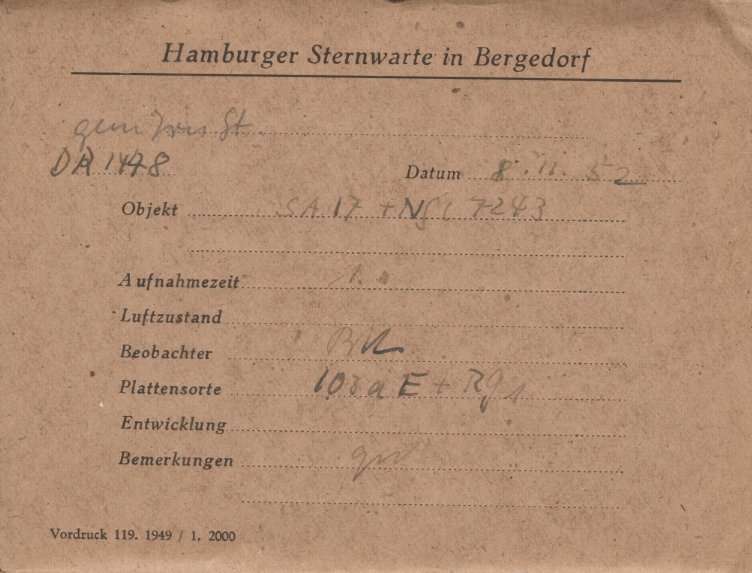 Hamburger Sternwarte in Bergedorf
DR 1478
Datum 8. 11. 52
Objekt SA 17 + NGC 7243
Aufnahmezeit 1.
Luftzustand
Beobachter
Plattensorte 103a E + RG1
Entwicklung
Bemerkungen gut
Vordruck 119. 1949 / 1. 2000